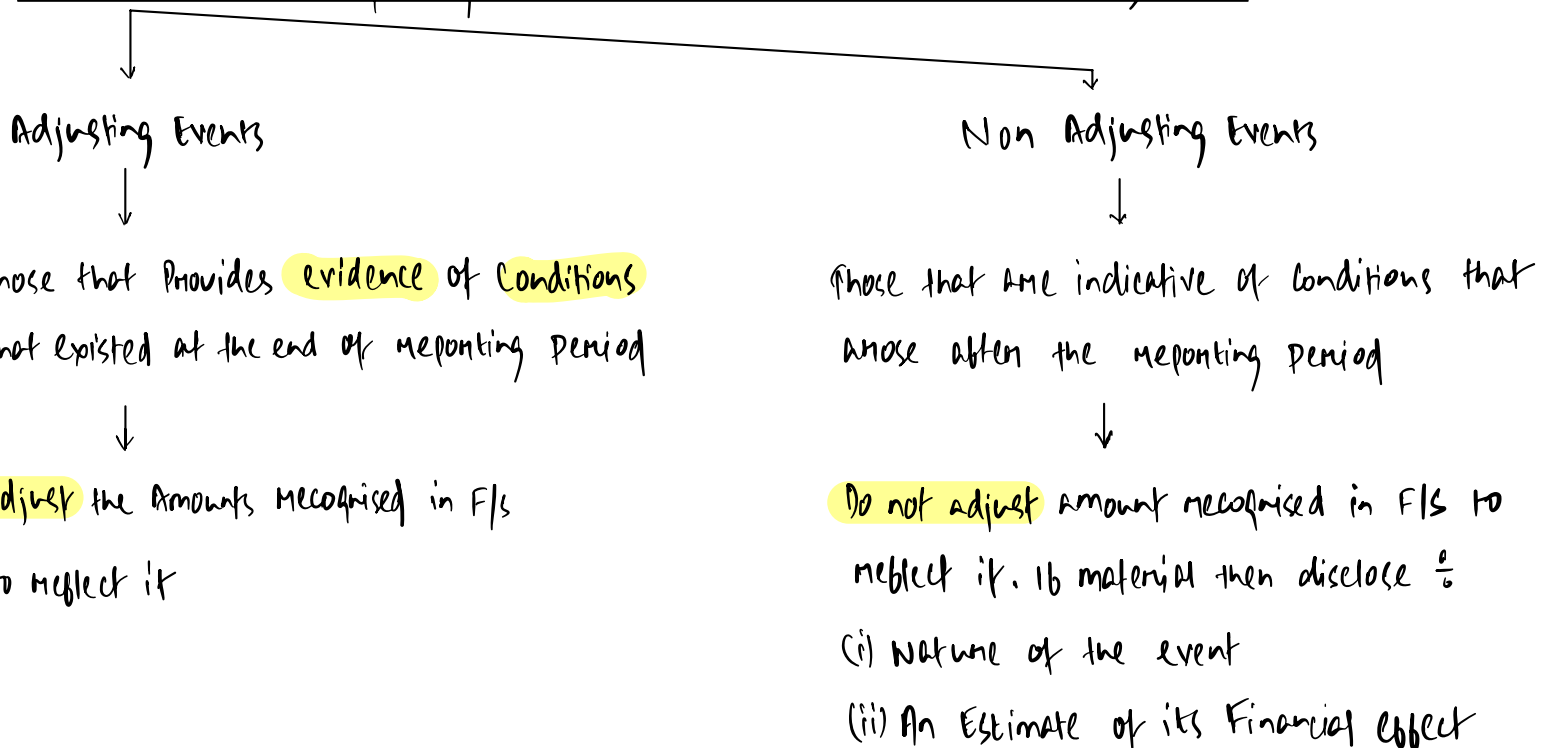 Adjusting Events
hose that Provides evidence of Conditions
hat existed at the end of reporting period
djust the Amounts recognised in F/s
o reflect it
Non Adjusting Events
Those that are indicative of conditions that
arose after the reporting period
Do not adjust amount recognised in F/S to
reflect it. If material then disclose
(i) Nature of the event
(ii) An Estimate of its Financial effect